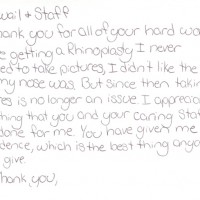 wail & Staff
hank you for all of your hard wor
e getting a Rhinoplasty I never
ed to take pictures, I didn't like the
my nose was. But since then takin
res is no longer an issue. I apprecia
thing that you and your caring Staf
done for me. You have given me
dence, which is the best thing anyo
give.
hank, you,